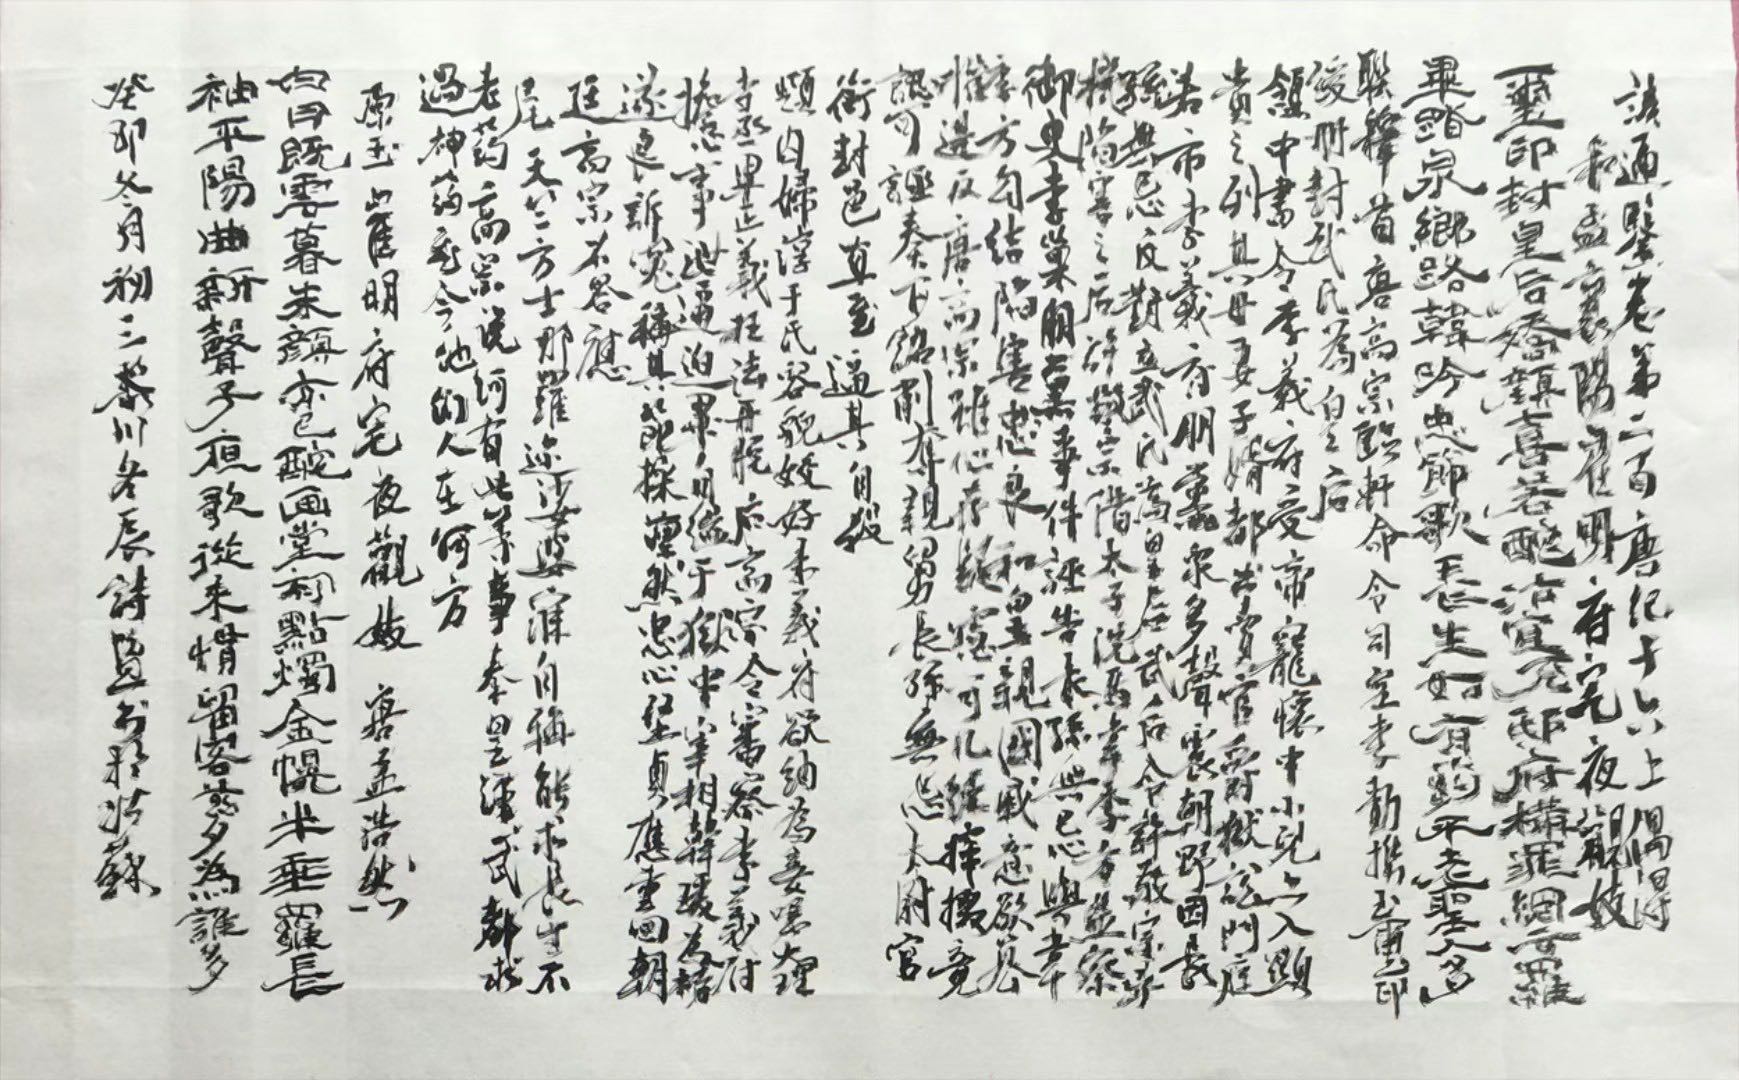 讀通鑒卷第二百唐紀十六上偶得
和孟襄陽崔明府宅夜觀妓
一璽印封皇后嬌顏喜若酡活宜冤邸府構罪網云羅
畢踏泉鄉路韓吟忠節歌長生如有藥不老聖人多
聯釋首唐高宗臨軒命令司空李勣攜玉璽印
綬冊封武氏為皇后
領中書令李義府受帝寵懷中小兒亦入顯
貴之列其母妻子婿都出賣官爵獄訟門庭
若市李義府朋黨眾多聲震朝野因長
孫無忌反對立武氏為皇后武后令許敬宗
構陷害之后許敬宗階太子洗馬韋季方監察
御史李巢朋黨事件誣告長孫無忌與韋
季方勾結陷害忠良和皇親國戚意欲篡
權造反唐高宗雖心存疑竇可几經揮攥竟
認可誣奏下詔削奪親舅長孫無忌太尉官
銜封邑直至逼其自殺
頸內婦淳于氏容貌姣好李義府欲納為妾囑大理
寺丞畢正義枉法開脫后高宗令審察李義府
擔心事泄逼迫畢自縊于獄中宰相韓瑗為褚
遂良訴冤稱其節操凜然忠心堅貞應重回朝
廷高宗不答應
尾天竺方士那羅邇娑婆寐自稱能求長生不
老藥高宗說何有此等事秦皇漢武都求
過神藥至今他們人在何方
原玉崔明府宅夜觀妓 唐孟浩然
白日既雲暮朱顏亦已酡画堂初點燭金幌半垂羅長
袖平陽曲新聲子夜歌從來慣留客茲夕為誰多
癸卯冬月初三黎川冬辰詩鹽書於姑蘇